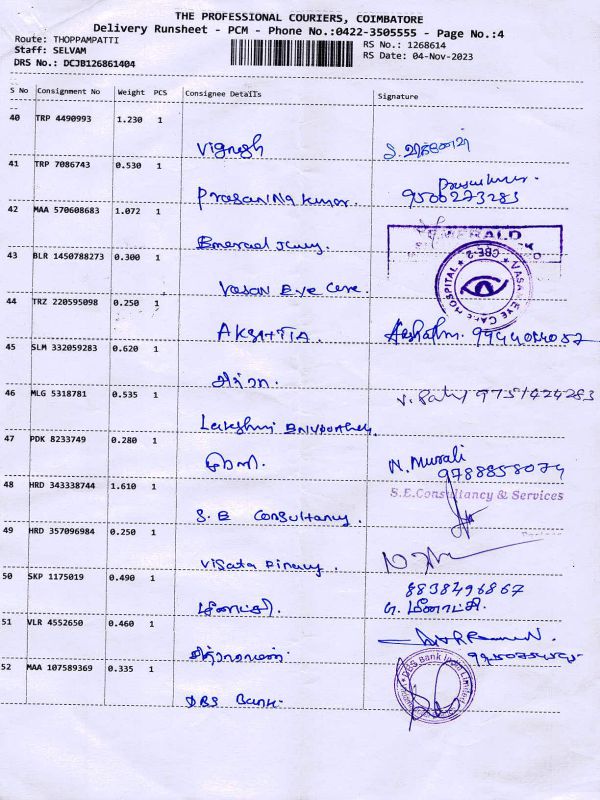 THE PROFESSIONAL COURIERS, COIMBATORE
Delivery Runsheet - PCM - Phone No.:0422-3505555 - Page No.:4
Route: THOPPAMPATTI
RS No.: 1268614
Staff: SELVAM
RS Date: 04-Nov-2023
DRS No.: DCJB126861404
S No Consignment No Weight PCS Consignee Details Signature
40 TRP 4490993 1.230 1
Vignesh
41 TRP 7086743 0.530 1
Prasanna Kumar. 9500273283
42 MAA 570608683 1.072 1
Emerald EMERALD
43 BLR 1450788273 0.300 1
Vasan Eye Care. VASAN EYE CARE HOSPITAL CBE-2
44 TRZ 220595098 0.250 1
45 SLM 332059283 0.620 1
46 MLG 5318781 0.535 1
9751424283
Lakshmi
47 PDK 8233749 0.280 1
N. Murali
9788858074
48 HRD 343338744 1.610 1
S.E.Consultancy & Services
S.E Consultancy.
49 HRD 357096984 0.250 1
50 SKP 1175019 0.490 1
8838496867
மீனாட்சி. மீனாட்சி.
51 VLR 4552650 0.460 1
52 MAA 107589369 0.335 1
DBS Bank DBS Bank India Limited